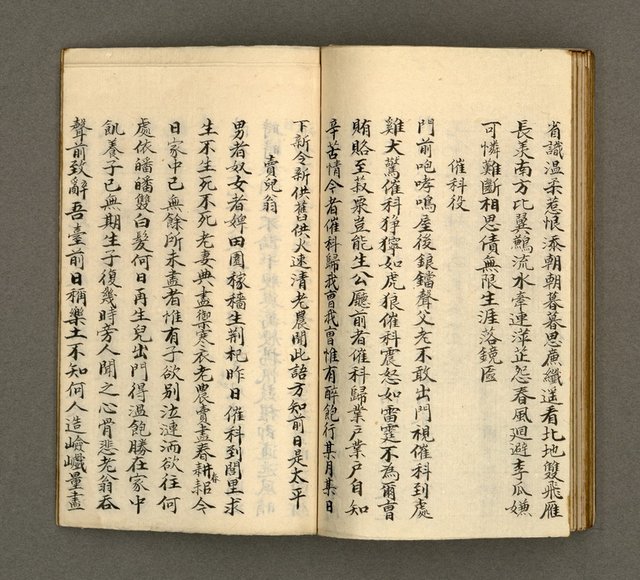 省識溫柔惹恨添朝朝暮暮思鷹纖遥看北地雙飛雁
長羡南方比翼鶼流水牽連萍芷怨春風廻避李瓜嫌
可憐難斷相思債無限生涯落鏡匳
催科役
門前咆哮鳴屋後鋃鐺聲父老不敢出門視催科到處
雞犬驚催科猙獰如虎狼催科震怒如雷霆不為爾曹
賄賂至菽粟豈能生公廳前者催科歸業戶業戶自知
辛苦情今者催科歸我曹我曹惟有醉飽行某月某日
下新令新供舊供火速清老農聞此語方知前日是太平
賣兒翁
男者奴女者婢田園稼穡生荊杞昨日催科到閭里求
生不生死不死老妻典盡禦寒衣老農賣盡春耕耜今
日家中已無餘所未盡者惟有子欲別泣漣洏欲往何
處依皤皤雙白髮何日再生兒出門得溫飽勝在家中
飢養子已無期生子復幾時旁人聞之心骨悲老翁吞
聲前致辭吾臺前日稱樂土不知何人造嶮巇量盡